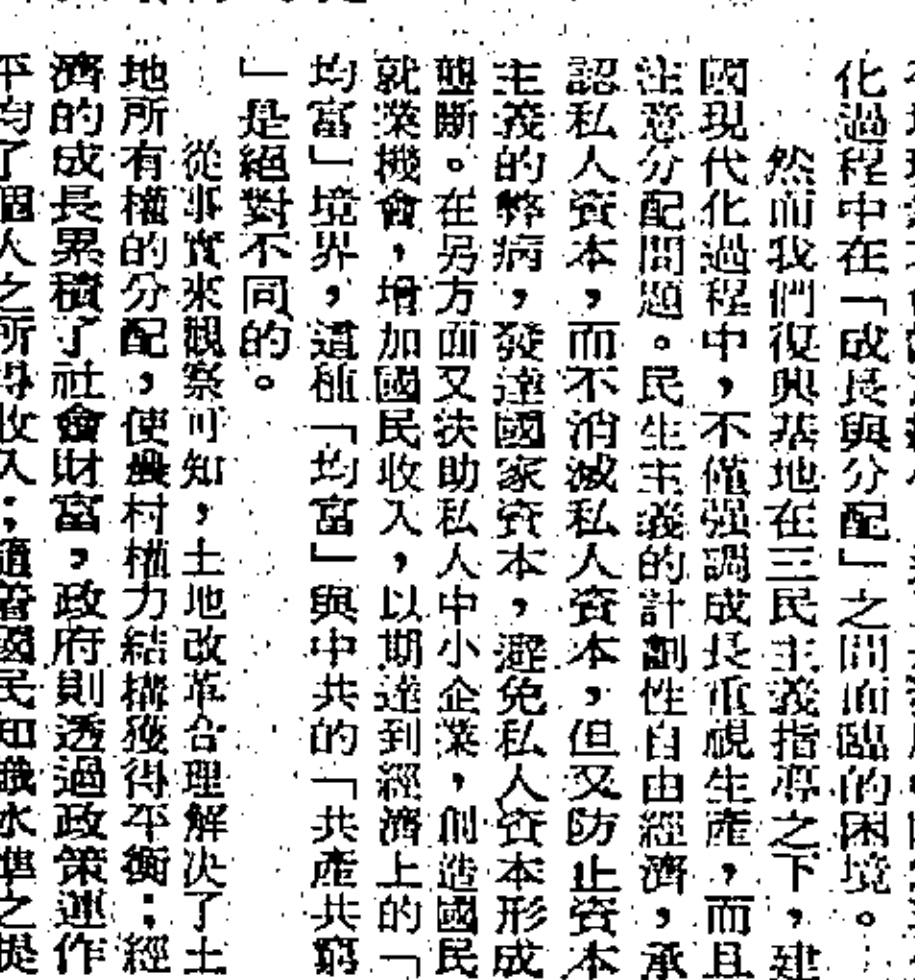 化過程中在「成長與分配」之間面臨的困境。
然而我們復興基地在三民主義指導之下，建
國現代化過程中，不僅强調成長重視生產，而且
注意分配問題。民生主義的計劃性自由經濟，承
認私人資本，而不消滅私人資本，但又防止資本
主義的弊病，發達國家資本，避免私人資本形成
壟斷。在另方面又扶助私人中小企業，創造國民
就業機會，增加國民收入，以期達到經濟上的「
均富」境界，這種「均富」與中共的「共產共窮
」是絕對不同的。
從事實來觀察可知，土地改革合理解決了土
地所有權的分配，使農村權力結構獲得平衡；經
濟的成長累積了社會財富，政府則透過政策運作
平均了個人之所得收入；隨着國民知識水準之提